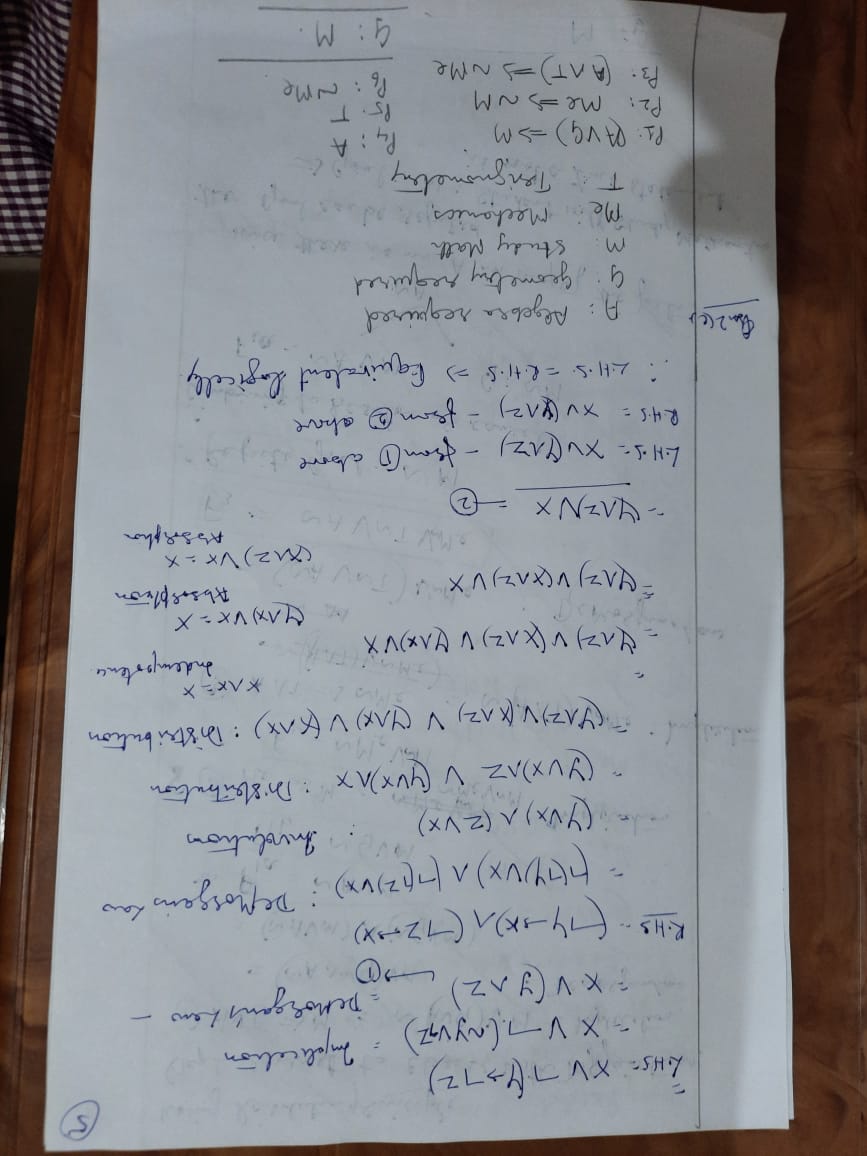 5
=
L.HS = X V ¬(Y→¬Z)
= X V ¬(~Y V ¬Z) : Implication
= X V (Y ∧ Z) = DeMorgan's Law –
→ ①
R.H.S – (¬Y→X) ∧ (¬Z→X)
= (¬(¬Y) V X) ∧ (¬(¬Z) V X) : DeMorgan's Law
= (Y V X) ∧ (Z V X) : Involution
= (Y V X) ∧ Z V (Y V X) ∧ X : Distribution
= (Y ∧ Z) V (X ∧ Z) V (Y ∧ X) V (X ∧ X) : Distribution
X ∧ X = X
Indempotence
=
= (Y ∧ Z) V (X ∧ Z) V (Y ∧ X) V X
(Y ∧ X) V X = X
Absorption
= (Y ∧ Z) V (X ∧ Z) V X
(X ∧ Z) V X = X
Absorption
= (Y ∧ Z) V X = ②
L.H.S = X V (Y ∧ Z) – from ① above
R.H.S = X V (Y ∧ Z) – from ② above
∴ L.H.S. = R.H.S => Equivalent logically.
Qsn 2(c)
A : Algebra required
G : Geometry required
M : Study Math
Me : Mechanics
T Terignometry
P1: (A V G) => M
P2: Me => ~M
P3. (A ∧ T) => ~Me
P4 : A
P5 . T
P6 : ~Me
G : M.